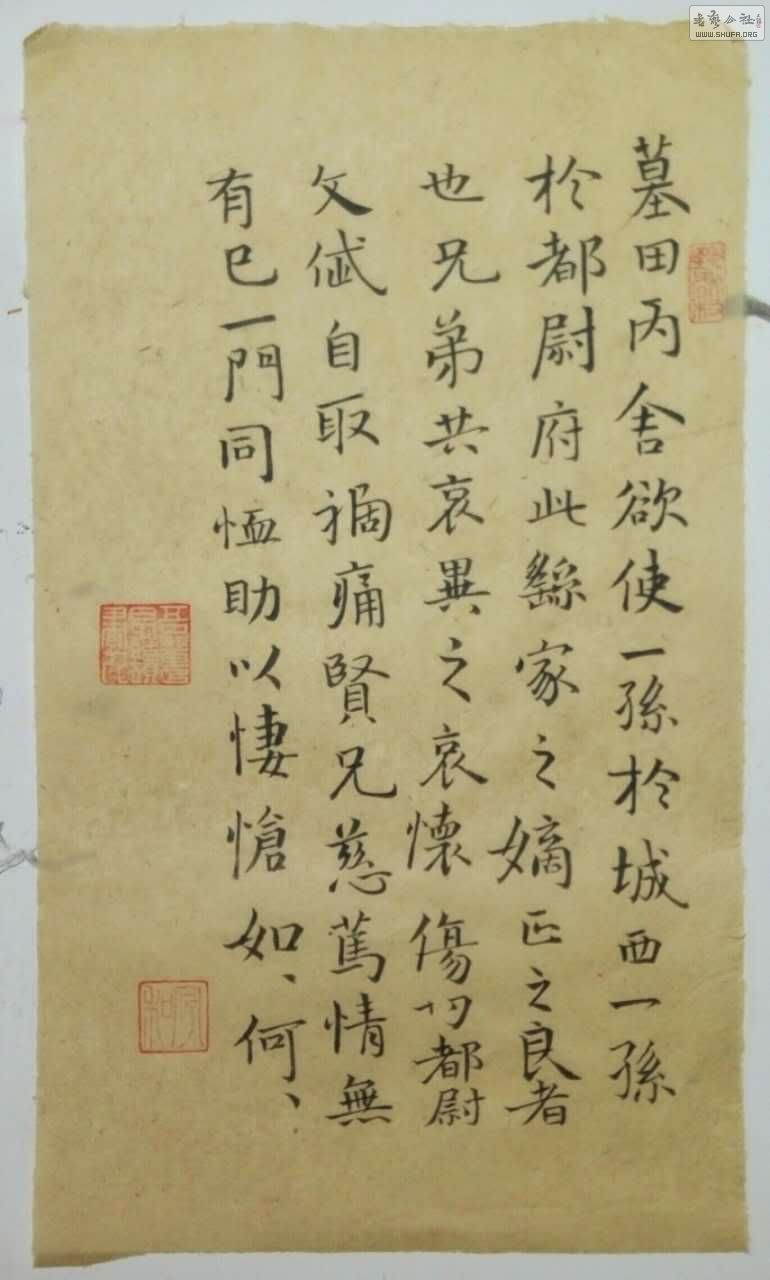 墓田丙舍欲使一孫於城西一孫
於都尉府此繇家之嫡正之良者
也兄弟共哀異之哀懷傷切都尉
文岱自取禍痛賢兄慈篤情無
有已一門同恤助以悽愴如、何、
書藝公社
WWW.SHUFA.ORG